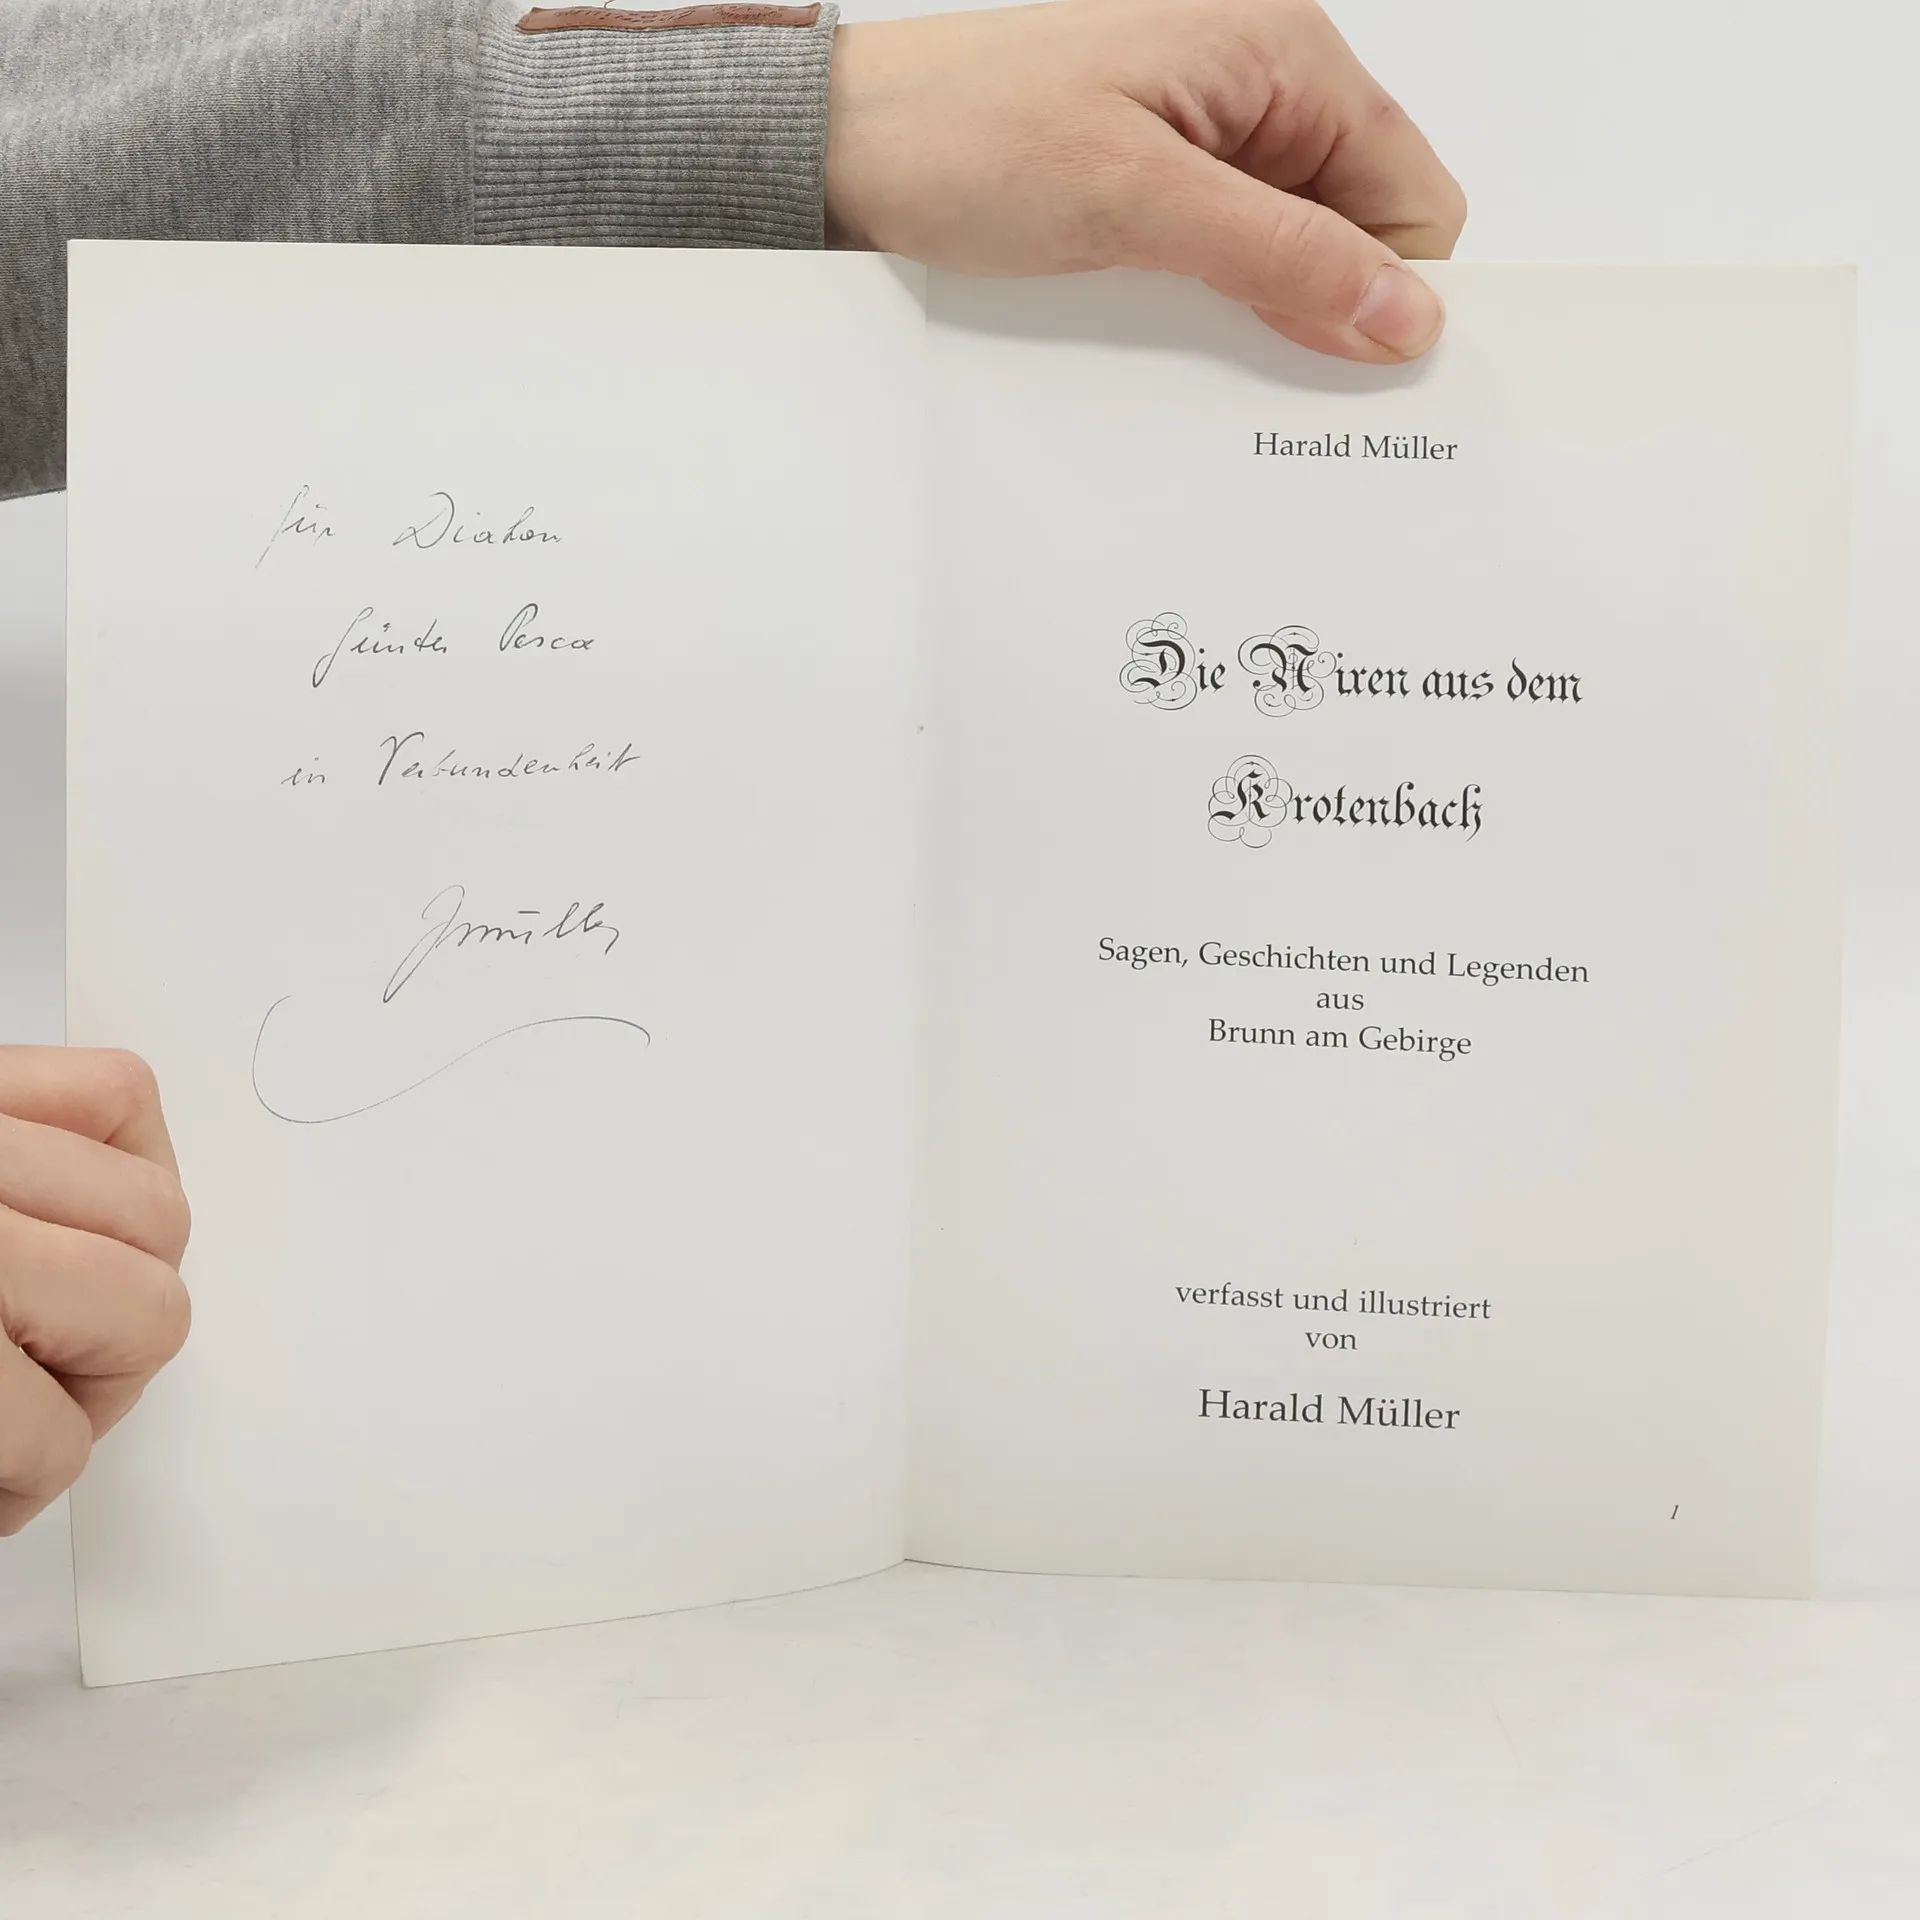 für Diakon
Günter Pesca
in Verbundenheit
Harald Müller
Die Nixen aus dem
Krotenbach
Sagen, Geschichten und Legenden
aus
Brunn am Gebirge
verfasst und illustriert
von
Harald Müller
1